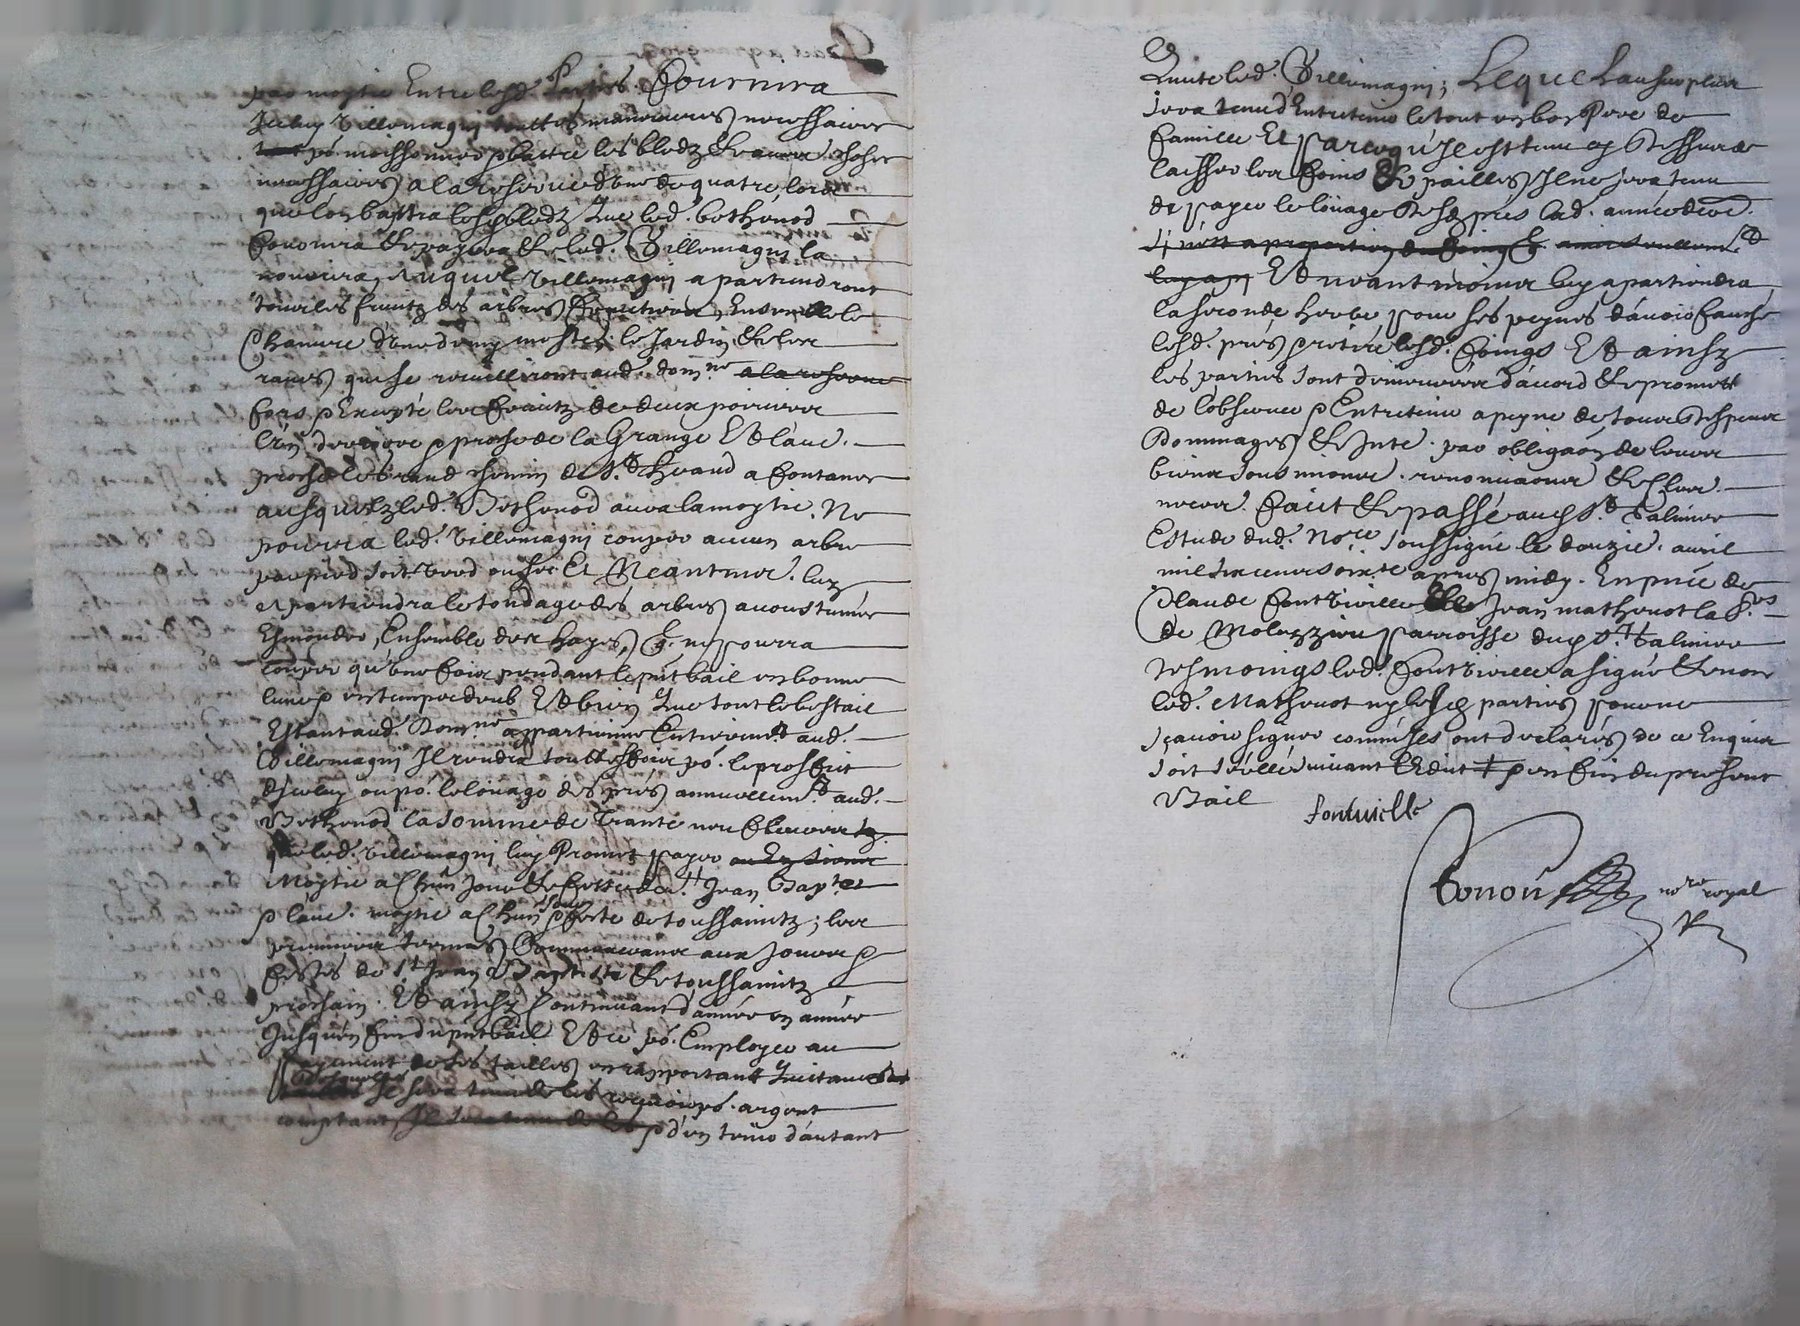 par moytie Entre lesd. Parties. Fournira
Iceluy Villemagni touttes manoeuvres necessaires
po. moissonner & battre les bledz & autres choses
necessaires a la reserve d'une de quatre lors
que lon battra lesd. bledz Que led. Bothenod
fournira & payera & led. Villemagni la
nourrira, Auquel Villemagni apartiendront
tous les fruitz des arbres fruitiers, Ensemble le
Chanvre d'une demy mestée, le Jardin & les
raves qui se recueilliront aud. dom.ne a la reserve
fors & Excepté les fruitz de deux poiriers
l'un derriere & proche de la Grange Et l'au.
proche le grand chemin de St. heand a fontanes
ausquelz led. Bothenod aura la moytie. Ne
pourra led. Villemagni couper aucun arbre
par pied soit verd ou sec Et Neantmos. luy
apartiendra le tondage des arbres acoustumés
Esmonder, Ensemble des hayes, q. ne pourra
couper qu'une fois pendant le pnt bail en bonne
lune & en temps deub Et bien Que tout le bestail
Estant aud. Dom.ne appartienne Entierem.t aud.
Villemagni Il rendra touttesfois po. le proffict
d'iceluy ou po. le louage des prés annuellem.t aud.
Bothenod la somme de Trante neuf livres
que led. Villemagni luy Promet payer
Moytie a chun Jour & feste de St. Jean Bap.te
& l'au. moytie a chun jour & feste de toussainctz; les
premiers termes Commenceans aux Jours &
festes de St. Jean Baptiste & toussainctz
prochain. Et ainsy Continuant d'année en année
Jusqu'en fin du pnt bail Et ce po. Employer au
Payement de ses tailles en rapportant Quitances
Il sera tenu de les recevoir po. argent
comptant & d'en tenir d'autant
Quite led. Villemagni; Lequel au surplus
sera tenu d'Entretenir le tout en bon Pere de
famille Et parce qu'Il est tenu cy Dessus de
laisser les foins & pailles Il ne sera tenu
de payer le louage desd. prés lad. année der.
Et neantmoins luy apartiendra
la seconde herbe pour ses peynes d'avoir fauché
lesd. prés & retiré lesd. foings Et ainsy
les parties sont demeurées d'acord & promett
de l'observer & Entretenir a peyne de tous Despens
Dommages & Inte. par obligaon de leurs
biens sousmions. renonciaons & Clau.
neces. Faict & passé aud. St. Galmier
Estude dud. No.re soussigné le douzie. avril
mil six cens soix.te apres midy. En pnce de
Claude Fontvieille & Jean mathevot
de Molezzieu Parroisse dud. St. Galmier
tesmoings led. Fontvieille a signé & non
led. Mathevot ny lesd. parties pour ne
sçavoir signer comm'Ils ont declarés de ce Enquis
soit scellé suivant l'Edit & en fin du present
Bail
fontvieille
no.re royal